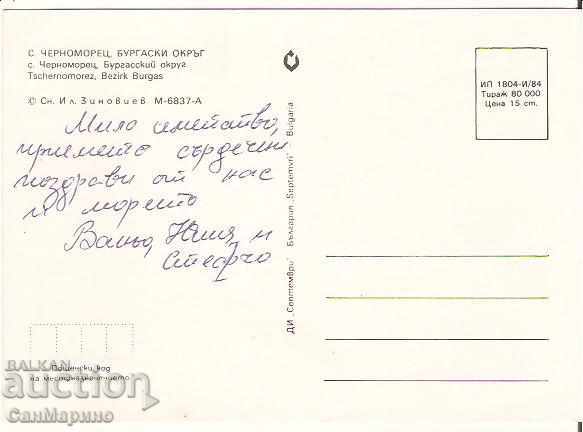 С. ЧЕРНОМОРЕЦ, БУРГАСКИ ОКРЪГ
с. Черноморец, Бургасский округ
Tschernomorez, Bezirk Burgas
© Сн. Ил. Зиновиев М-6837-А
Мило семейство,
приемете сърдечни
поздрави от нас
и морето
Ваньо, и
Стефчо
Пощенски код
на местоназначението
ДИ „Септември" България „Septemvri" Bulgaria
ИП 1804-И/84
Тираж 80 000
Цена 15 ст.
BALKAN
auction
СанМарино